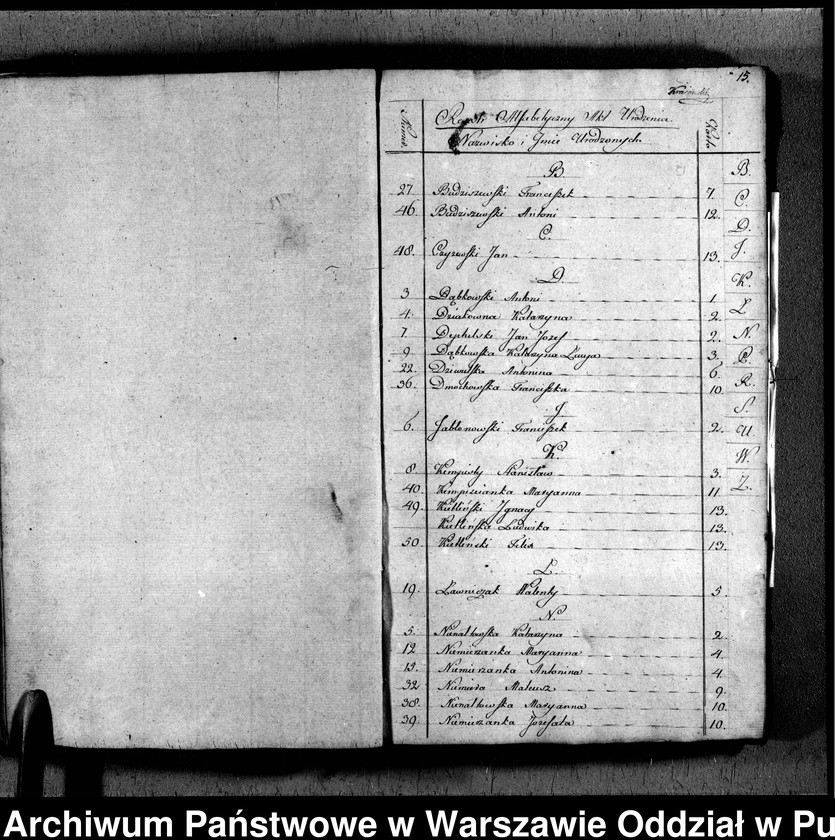 15.
Numer
Karta
Rejestr Alfabetyczny Akt Urodzenia
Nazwisko i Imie Urodzonych
B
27 Budziszewski Franciszek 7.
46. Budziszewski Antoni 12.
C.
48. Czyzewski Jan 13.
D
3 Dąbkowski Antoni 1.
4. Dziakowna Katarzyna 2.
7 Jan Jozef 2.
9. Dąbkowska Katarzyna Łucya 3.
22 Antonina 6.
36. Dmochowska Franciszka 10.
J
6. Jabłonowski Franciszek 2.
K.
8. Kempisty Stanisław 3.
40. Kempiscianka Maryanna 11
49. Kietliński Ignacy 13.
Kietlińska Ludwika 13.
50. Kietlinski Felix 13.
Ł.
19. Ławniczak Walenty 5.
N
5. Katarzyna 2.
12 Niemierzanka Maryanna 4.
13. Niemierzanka Antonina 4.
32 Niemiera Mateusz 9.
38. Maryanna 10.
39. Niemierzanka Jozefata 10.
B.
C.
D.
J.
K.
Ł
N
P.
R.
S.
U
W.
Z.
Archiwum Państwowe w Warszawie Oddział w Pu